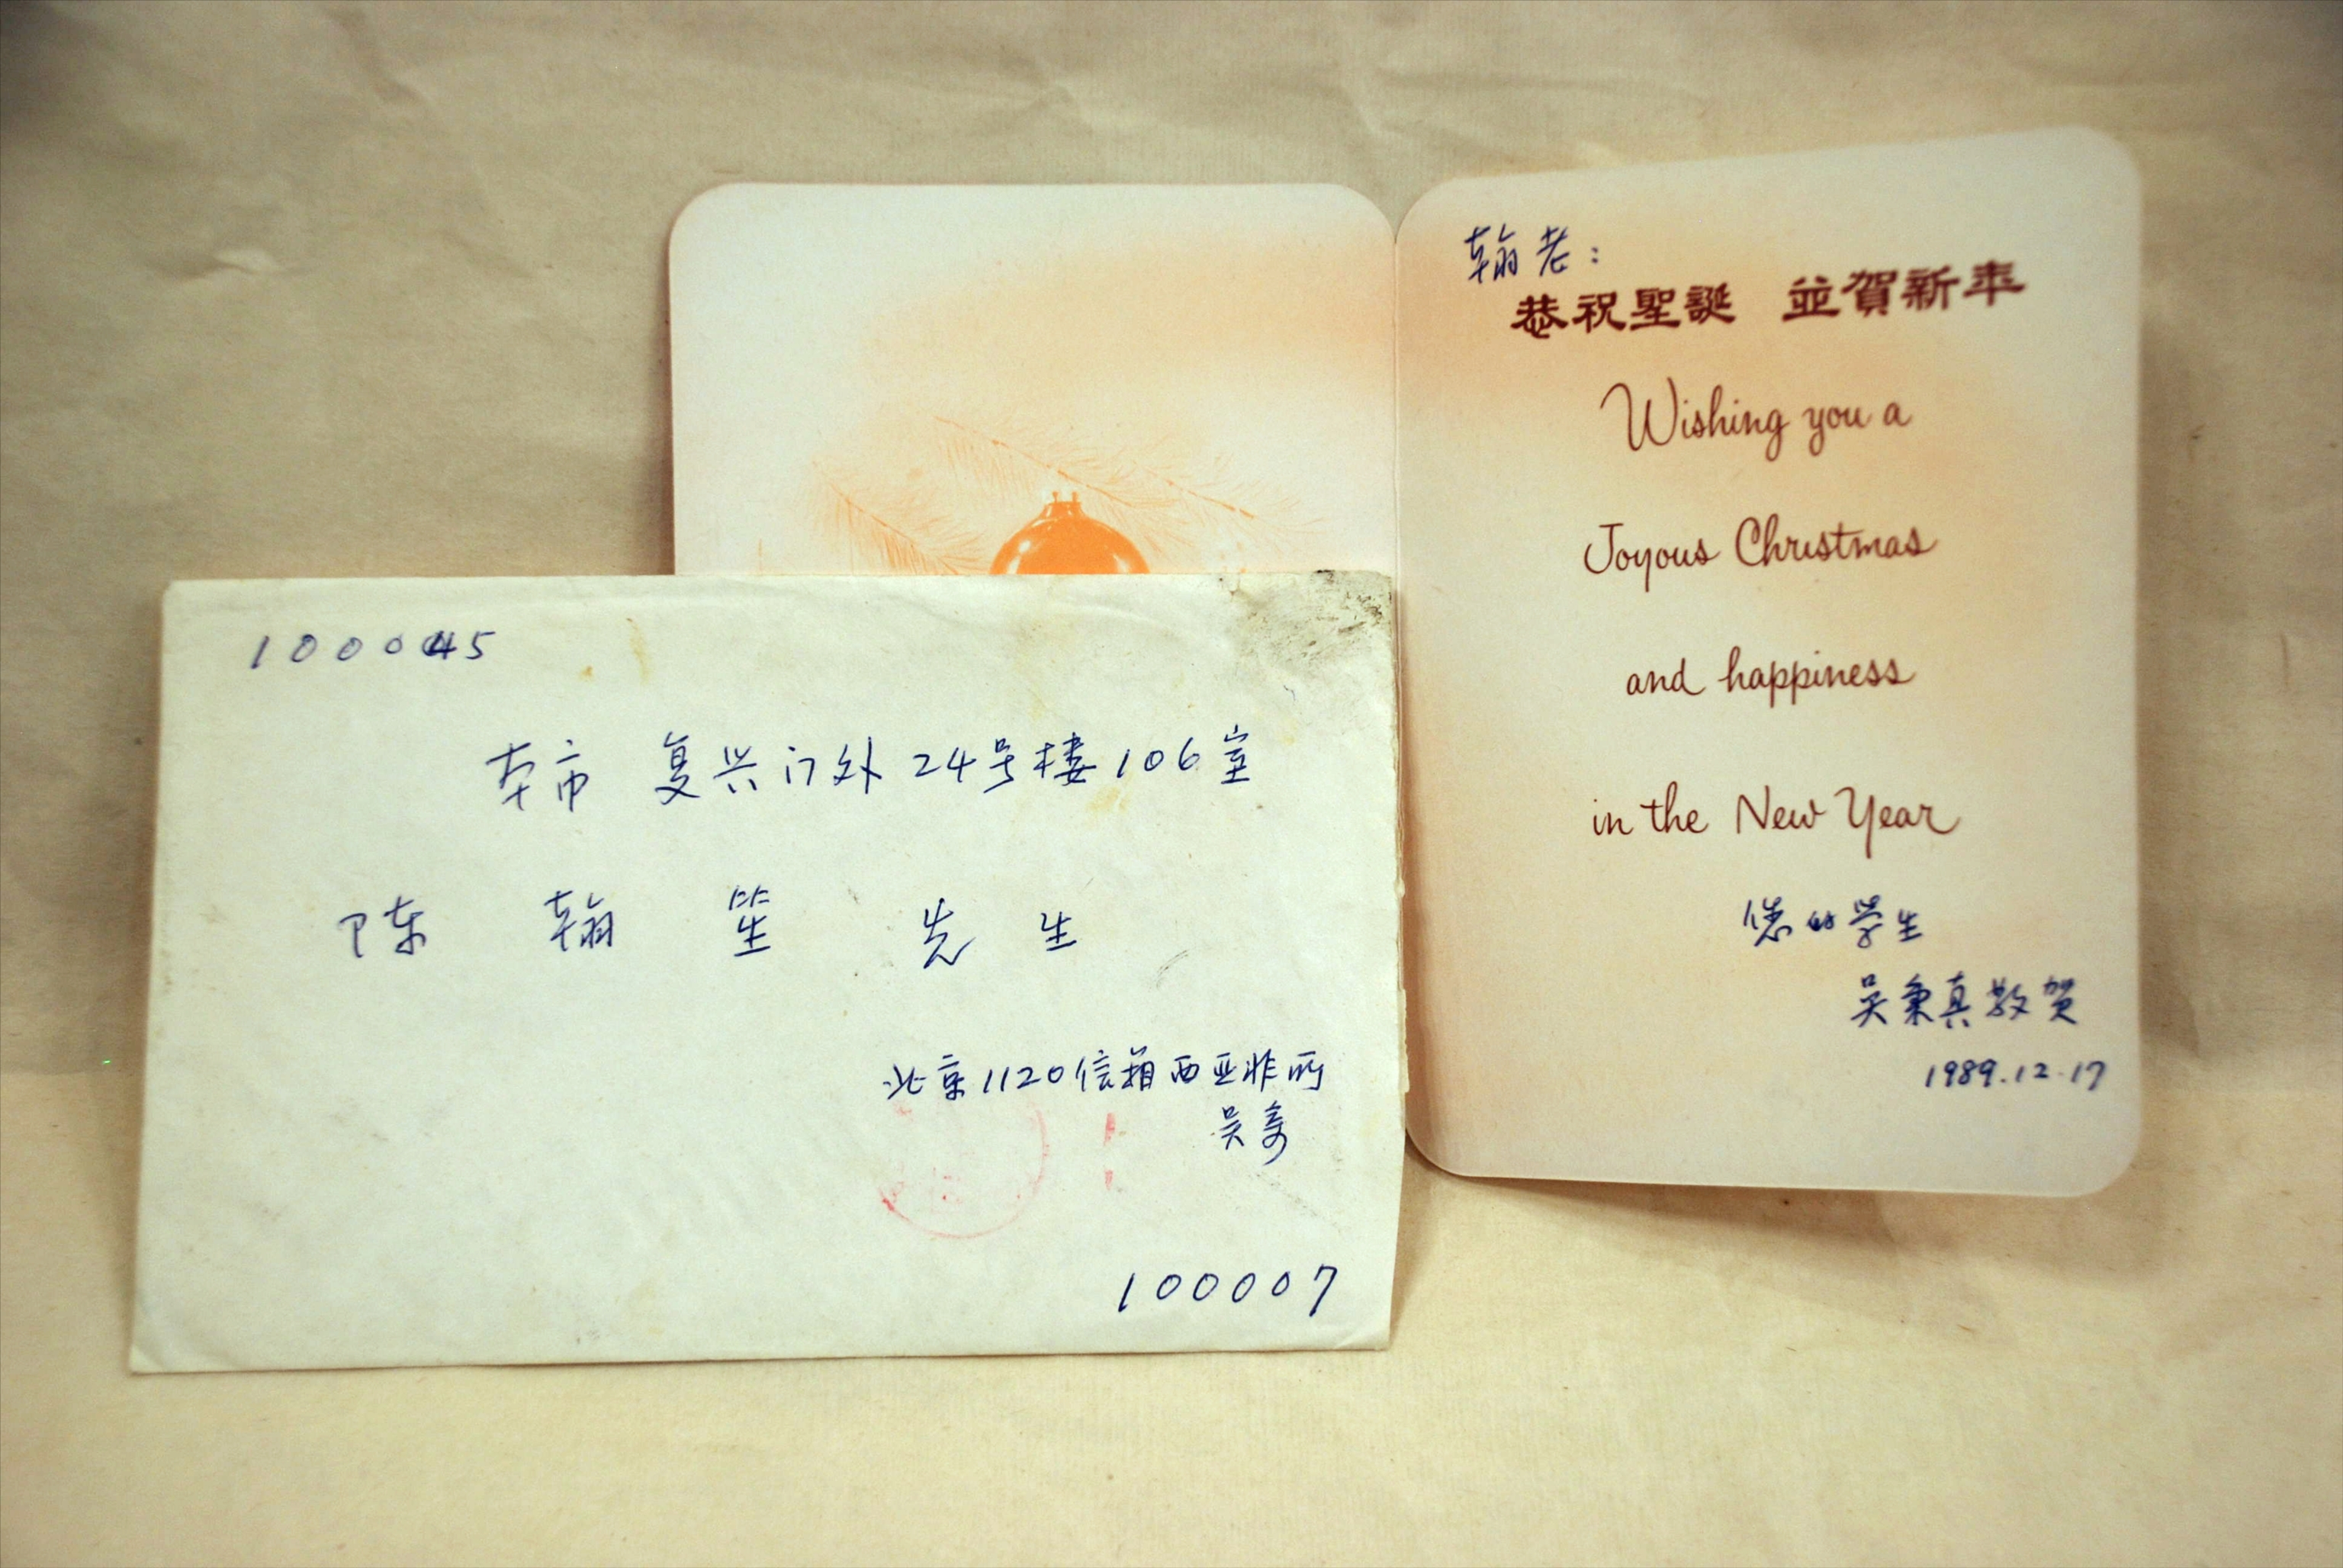 100045
本市 复兴门外24号楼106室
陈 翰笙 先生
北京1120信箱西亚非所
吴寄
100007
翰老:
恭祝聖誕 並賀新年
Wishing you a
Joyous Christmas
and happiness
in the New Year
您的学生
吴秉真敬贺
1989.12.17